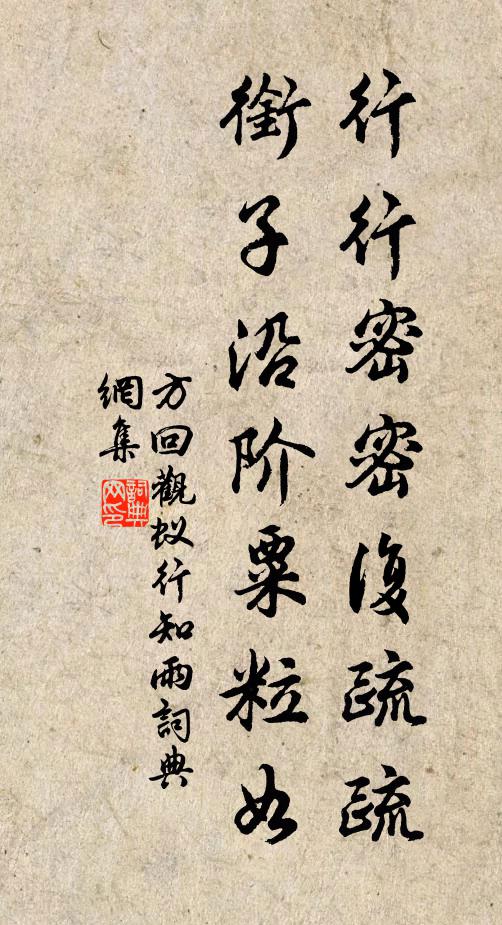 行行密密復疏疏
銜子沿阶粟粒如
方回觀蚁行知雨詞典
網集
詞典
网印